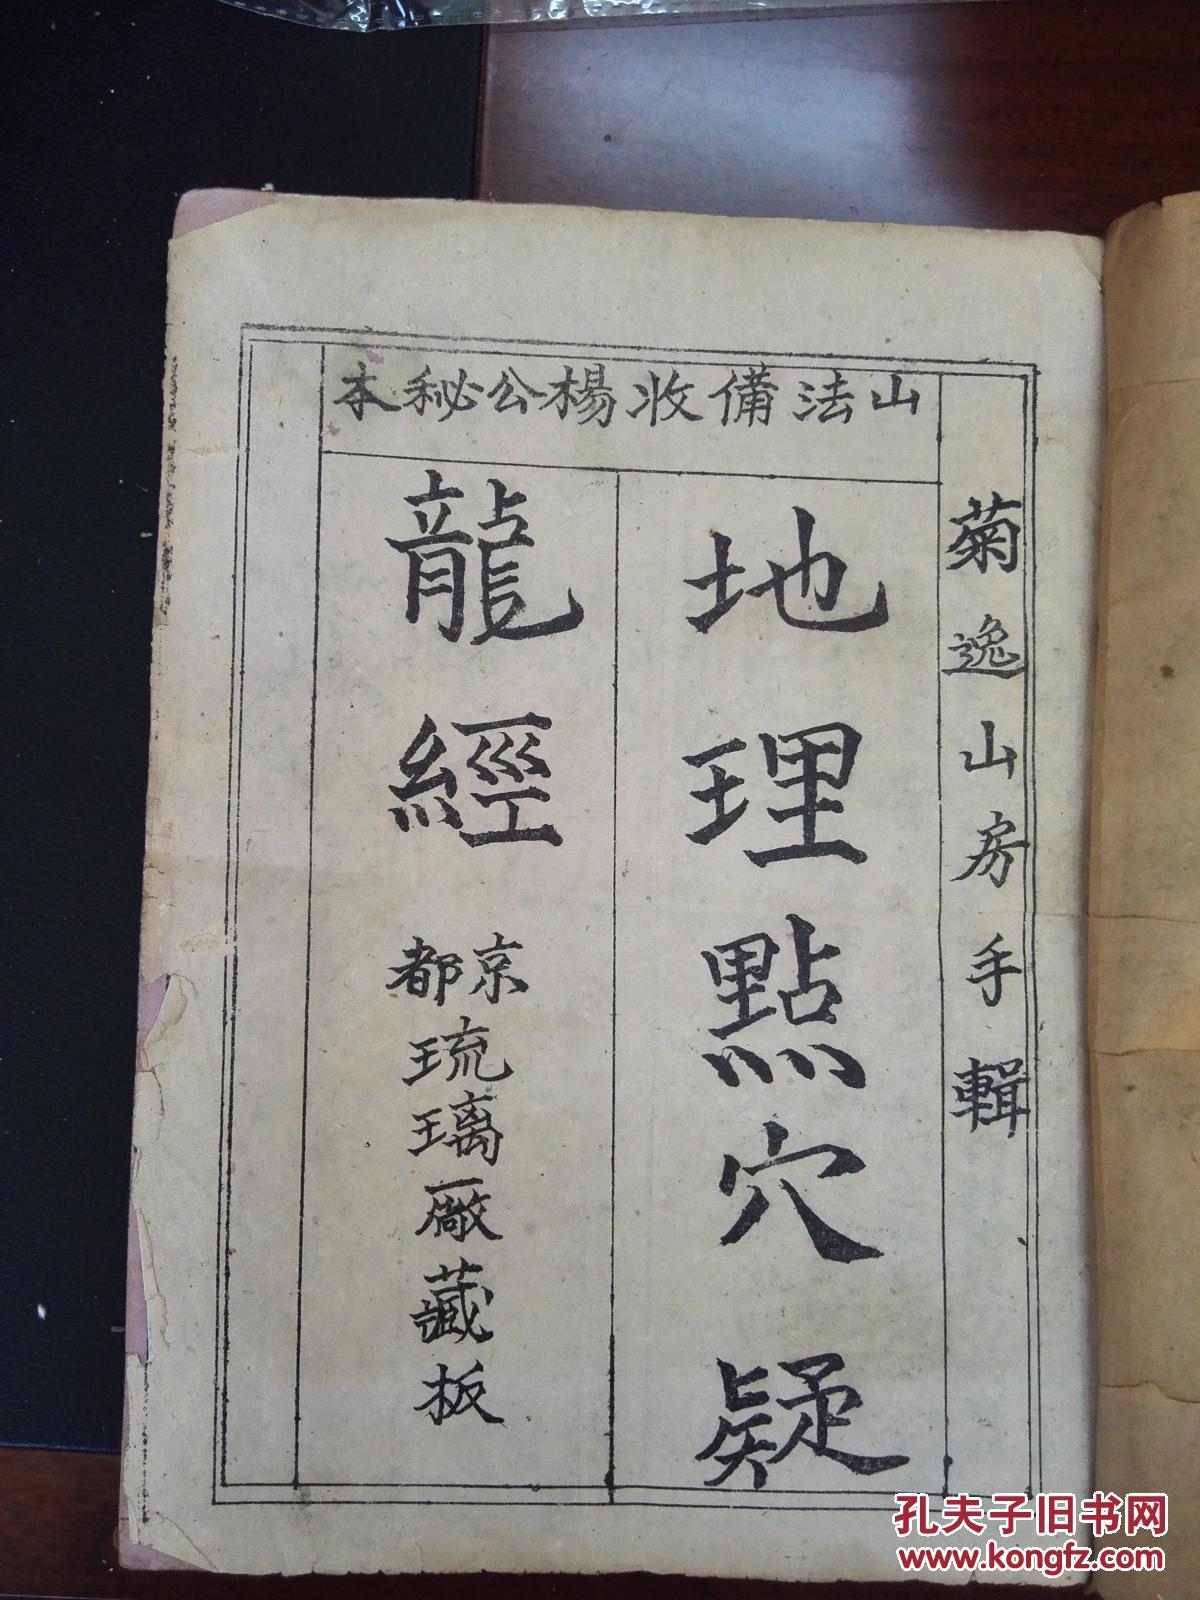 山法備收楊公秘本
菊逸山房手輯
地理點穴疑
龍經
京都
琉璃廠藏板
孔夫子旧书网
www.kongfz.com